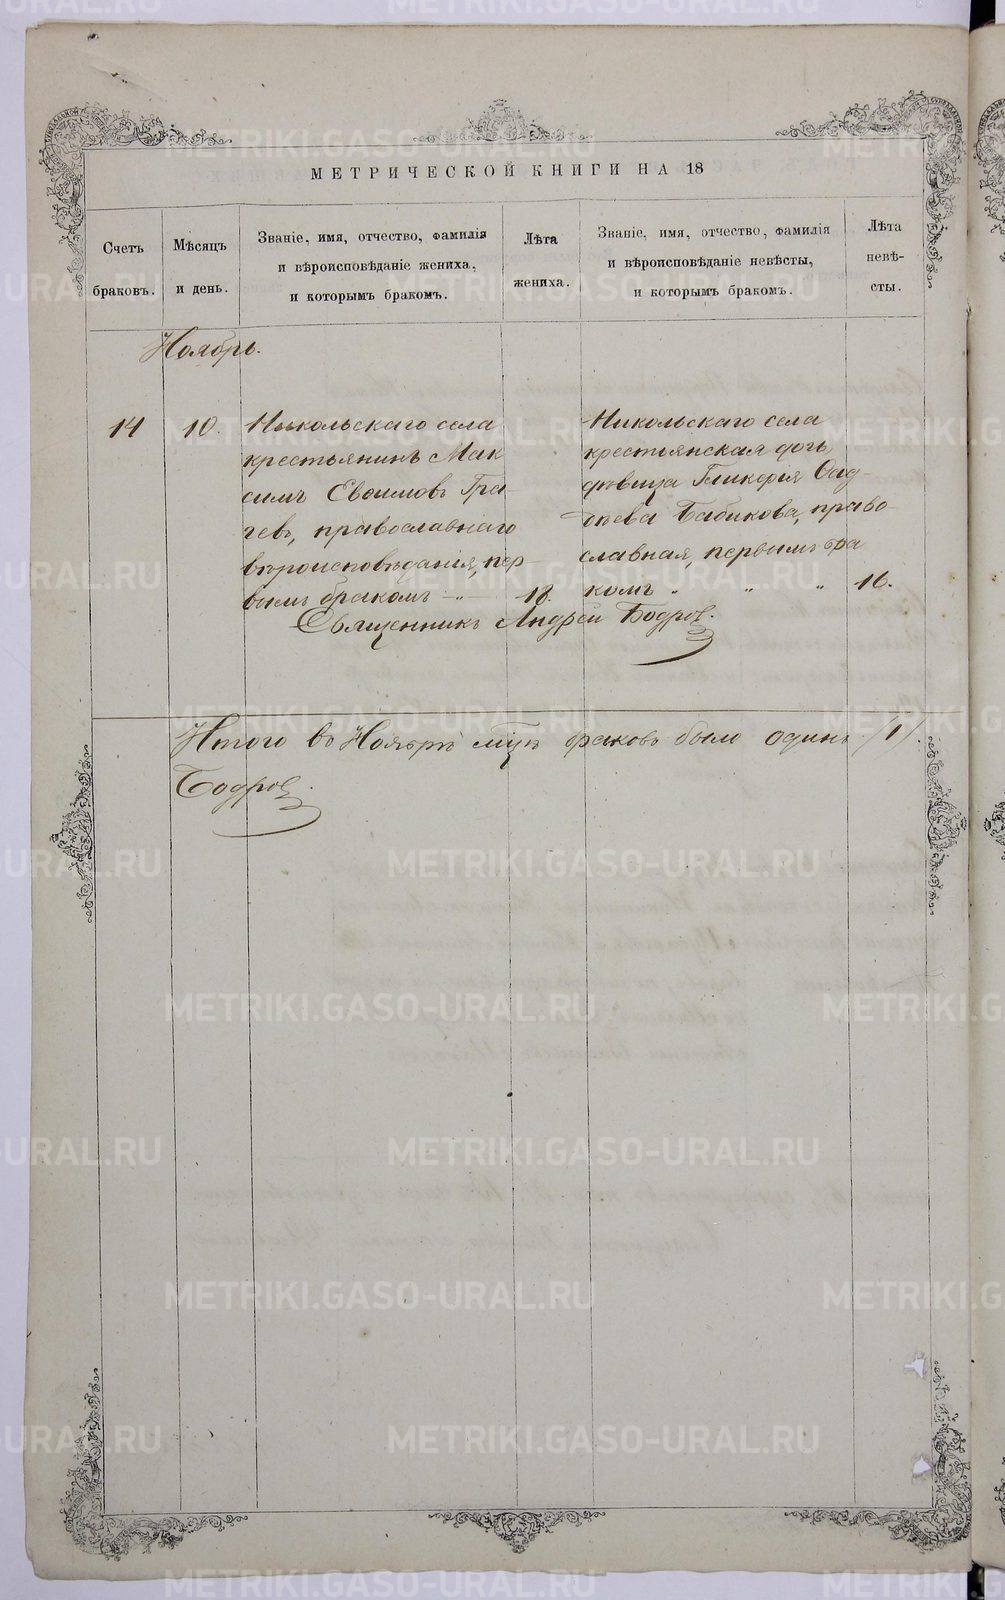 МЕТРИЧЕСКОЙ КНИГИ НА 18
Счетъ
браковъ.
Мѣсяцъ
и день.
Званіе, имя, отчество, фамилія
и вѣроисповѣданіе жениха,
и которымъ бракомъ.
Лѣта
жениха.
Званіе, имя, отчество, фамилія
и вѣроисповѣданіе невѣсты,
и которымъ бракомъ.
Лѣта
невѣ-
сты.
Ноябрь.
14
10.
Никольскаго села
крестьянинъ Мак
симъ Евѳимовъ Гра
чевъ, православнаго
вѣроисповѣданія, пер-
вымъ бракомъ
18.
Никольскаго села
крестьянская дочь
дѣвица Гликерія Ѳад-
дѣева Бабикова, право-
славная, первымъ бра
комъ " " "
16.
Священникъ Андрей Бодровъ.
Итого въ Ноябрѣ мцѣ браковъ было одинъ /1/.
Бодровъ.
METRIKI.GASO-URAL.RU